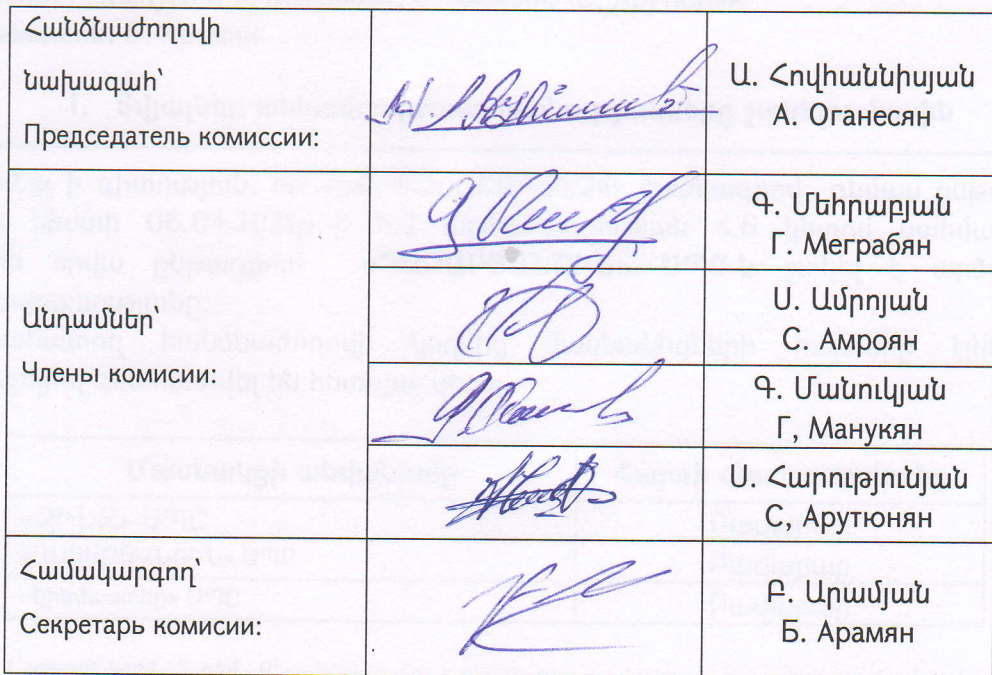 Հանձնաժողովի
նախագահ՝
Председатель комиссии:
Ա. Հովհաննիսյան
А. Оганесян
Անդամներ՝
Члены комисии:
Գ. Մեհրաբյան
Г. Меграбян
Ս. Ամրոյան
С. Амроян
Գ. Մանուկյան
Г, Манукян
Ս. Հարությունյան
С. Арутюнян
Համակարգող՝
Секретарь комисии:
Բ. Արամյան
Б. Арамян